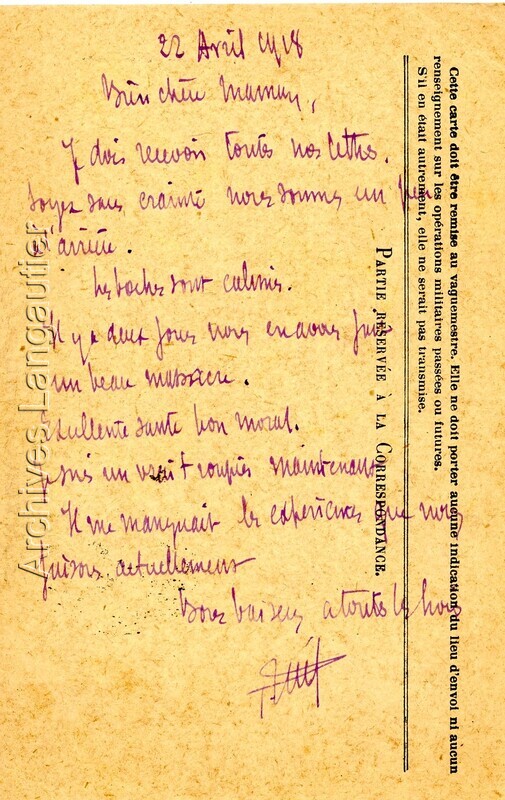 22 Avril 1918
Bien chère Maman,
J dois recevoir toutes nos lettres.
Soyez sans crainte nous sommes un peu
l'arrière.
Les boches sont calmés.
Il y a deux jours nous en avons fait
un beau massacre.
Excellente santé bon moral.
Je suis un vrait troupier maintenant
Il me manquait les expériences que nous
faisons actuellement
Bons baisers a toutes les trois
Cette carte doit être remise au vaguemestre. Elle ne doit porter aucune indication du lieu d'envoi ni aucun
renseignement sur les opérations militaires passées ou futures.
S'il en était autrement, elle ne serait pas transmise.
PARTIE RÉSERVÉE À LA CORRESPONDANCE.
Archives Langautier